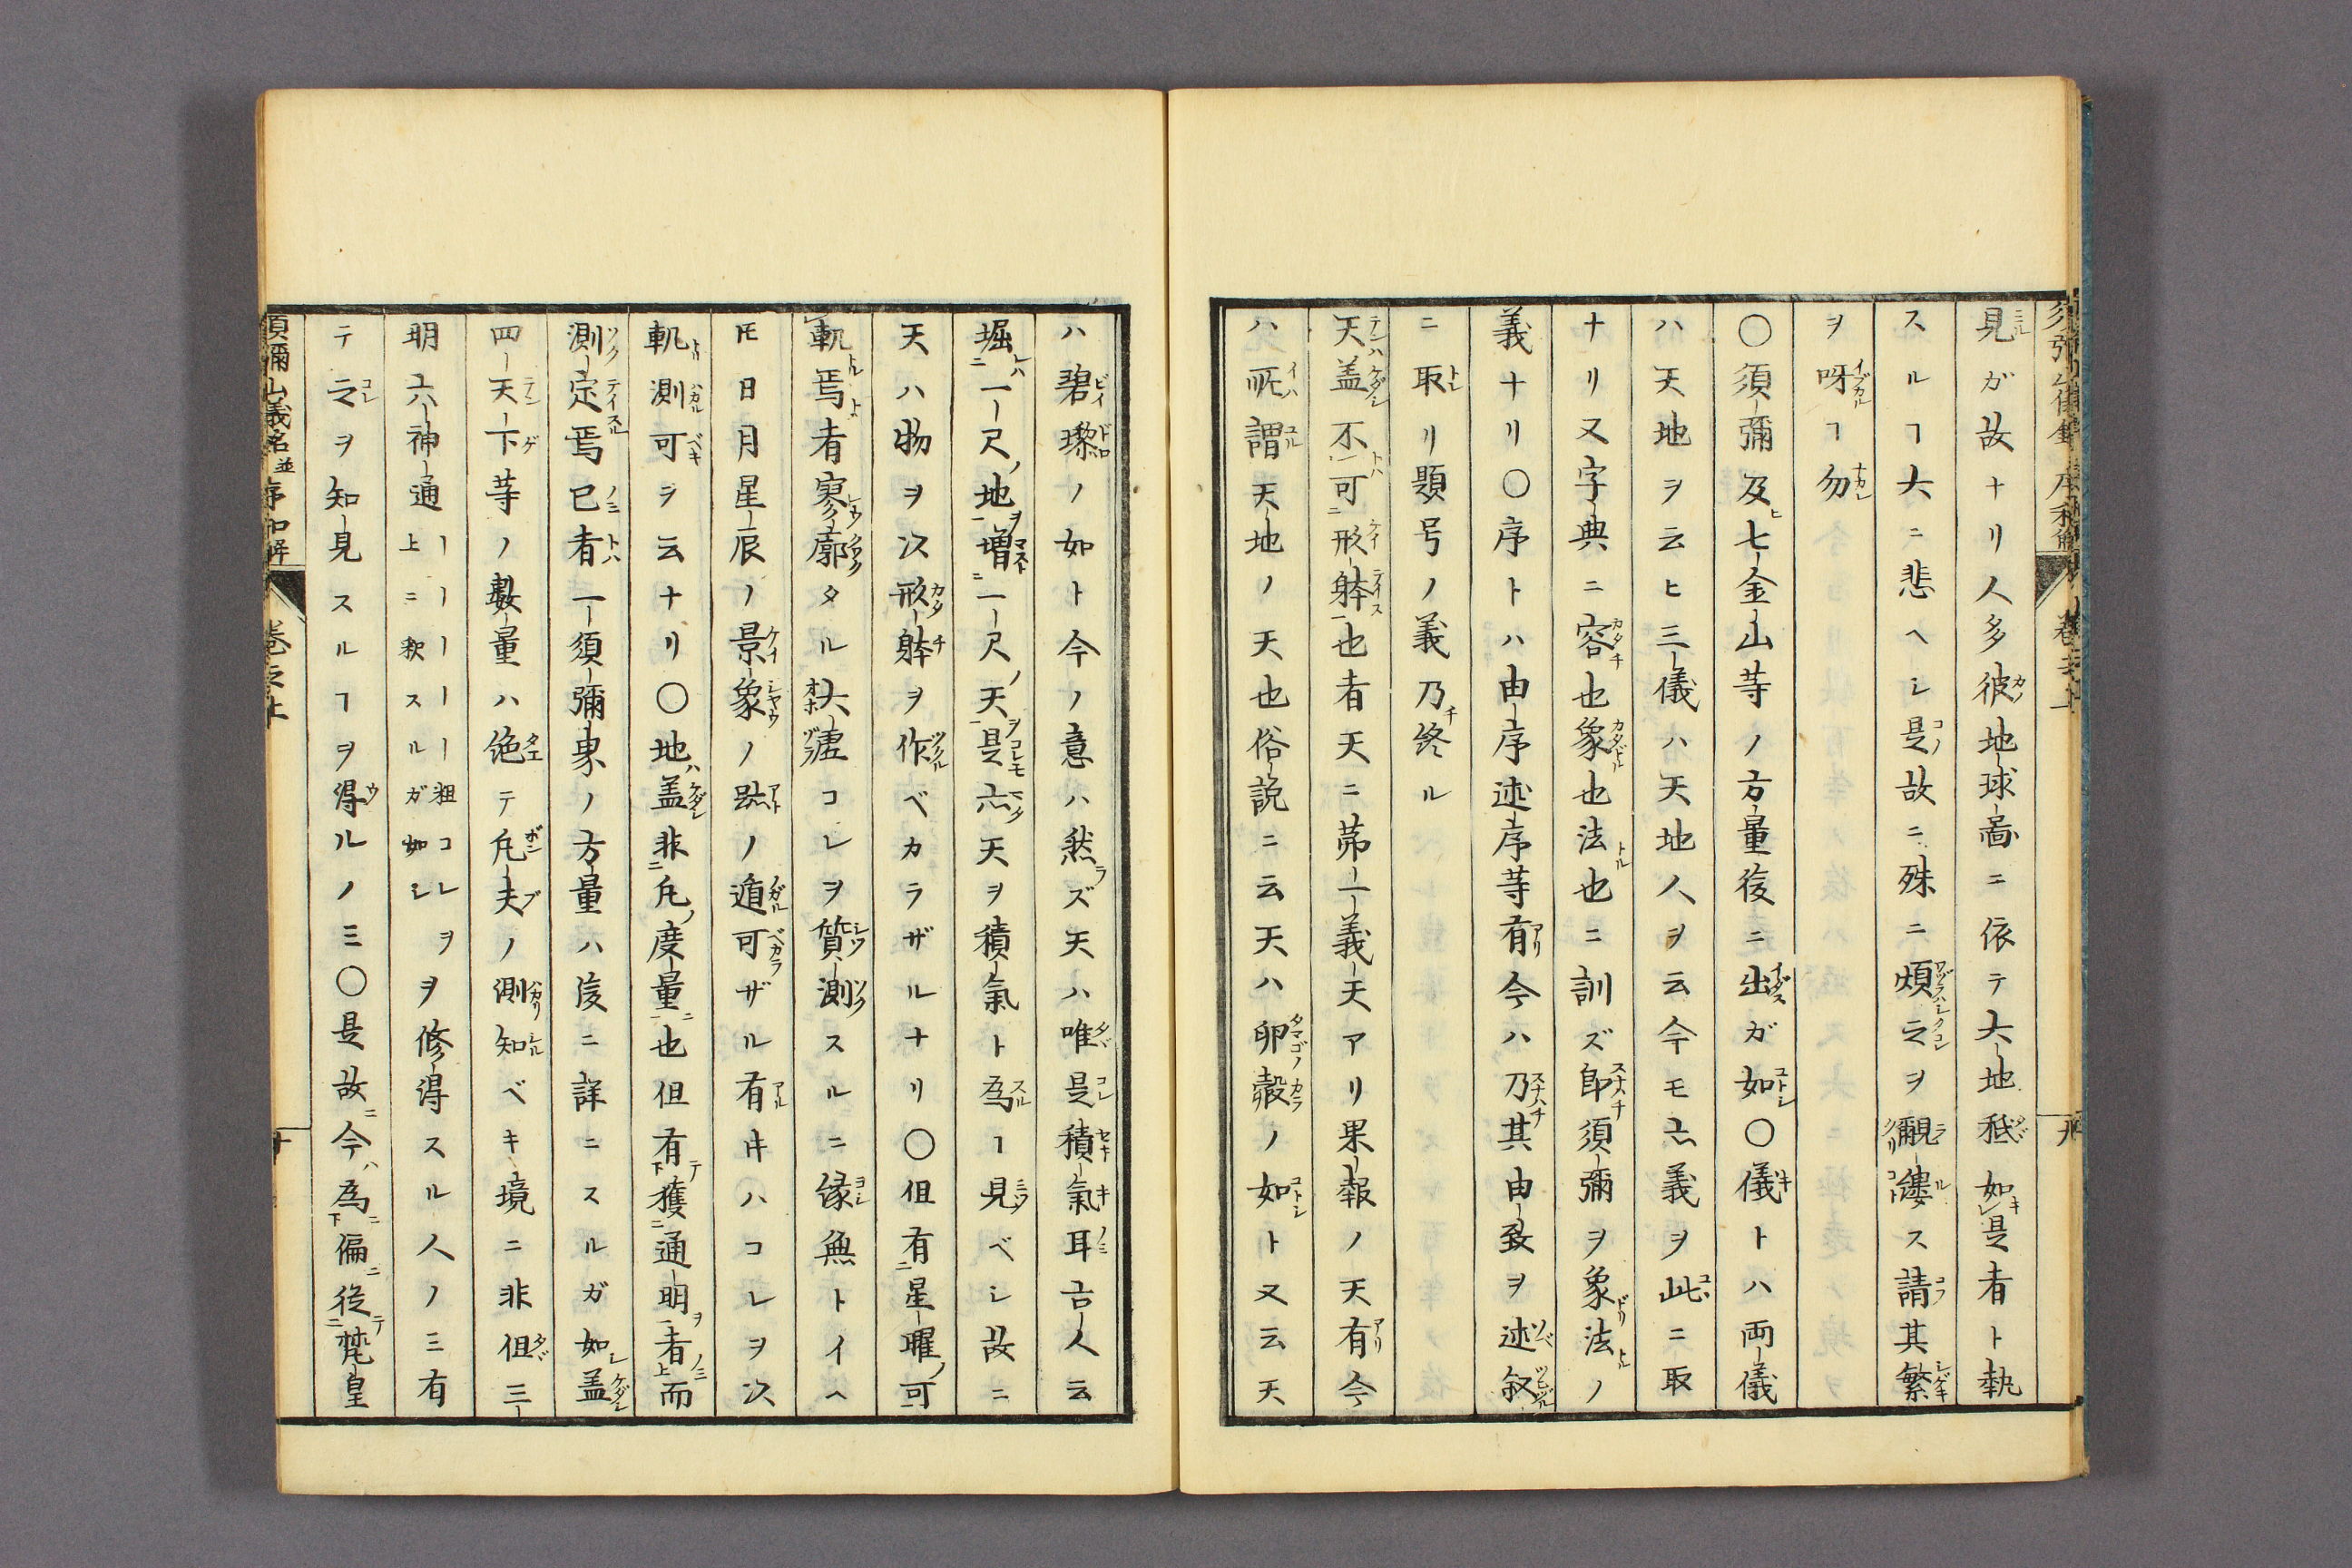 見ガ故ナリ人多彼地球啚ニ依テ大地秪如是者ト執
スルヿ大ニ悲ヘシ是故ニ殊ニ煩之ヲ覼縷ス請其繁
ヲ呀ヿ勿
〇須彌及七金山等ノ方量後ニ出ガ如〇儀トハ両儀
ハ天地ヲ云ヒ三儀ハ天地人ヲ云今モ亦義ヲ此ニ取
ナリ又字典ニ容也象也法也ニ訓ズ即須彌ヲ象法ノ
義ナリ〇序トハ由序述序等有今ハ乃其由致ヲ述叙
ニ取リ題号ノ義乃終ル
天盖不可形躰也者天ニ苐一義天アリ果報ノ天有今
ハ所謂天地ノ天也俗説ニ云天ハ卵殻ノ如ト又云天
ハ碧瓈ノ如ト今ノ意ハ然ズ天ハ唯是積氣耳古人云
堀一尺地増一尺天是亦天ヲ積氣ト為ヿ見ベシ故ニ
天ハ物ヲ以形躰ヲ作ベカラザルナリ〇但有星曜可
軌焉者寥廓タル大虚コレヲ質測スルニ縁無トイヘ
𪜈日月星辰ノ景象ノ跡ノ遁可ザル有牛ハコレヲ以
軌測可ヲ云ナリ〇地盖非凡度量也但有獲通明者而
測定焉已者一須彌界ノ方量ハ後ニ詳ニスルガ如盖
四天下等ノ數量ハ絶テ凡夫ノ測知ベキ境ニ非但三
明六神通上ニ釈スルガ如シ粗コレヲヲ修得スル人ノミ有
テ之ヲ知見スルヿヲ得ルノミ〇是故今為偏從梵皇
須彌山儀名並序和解 巻之上 十